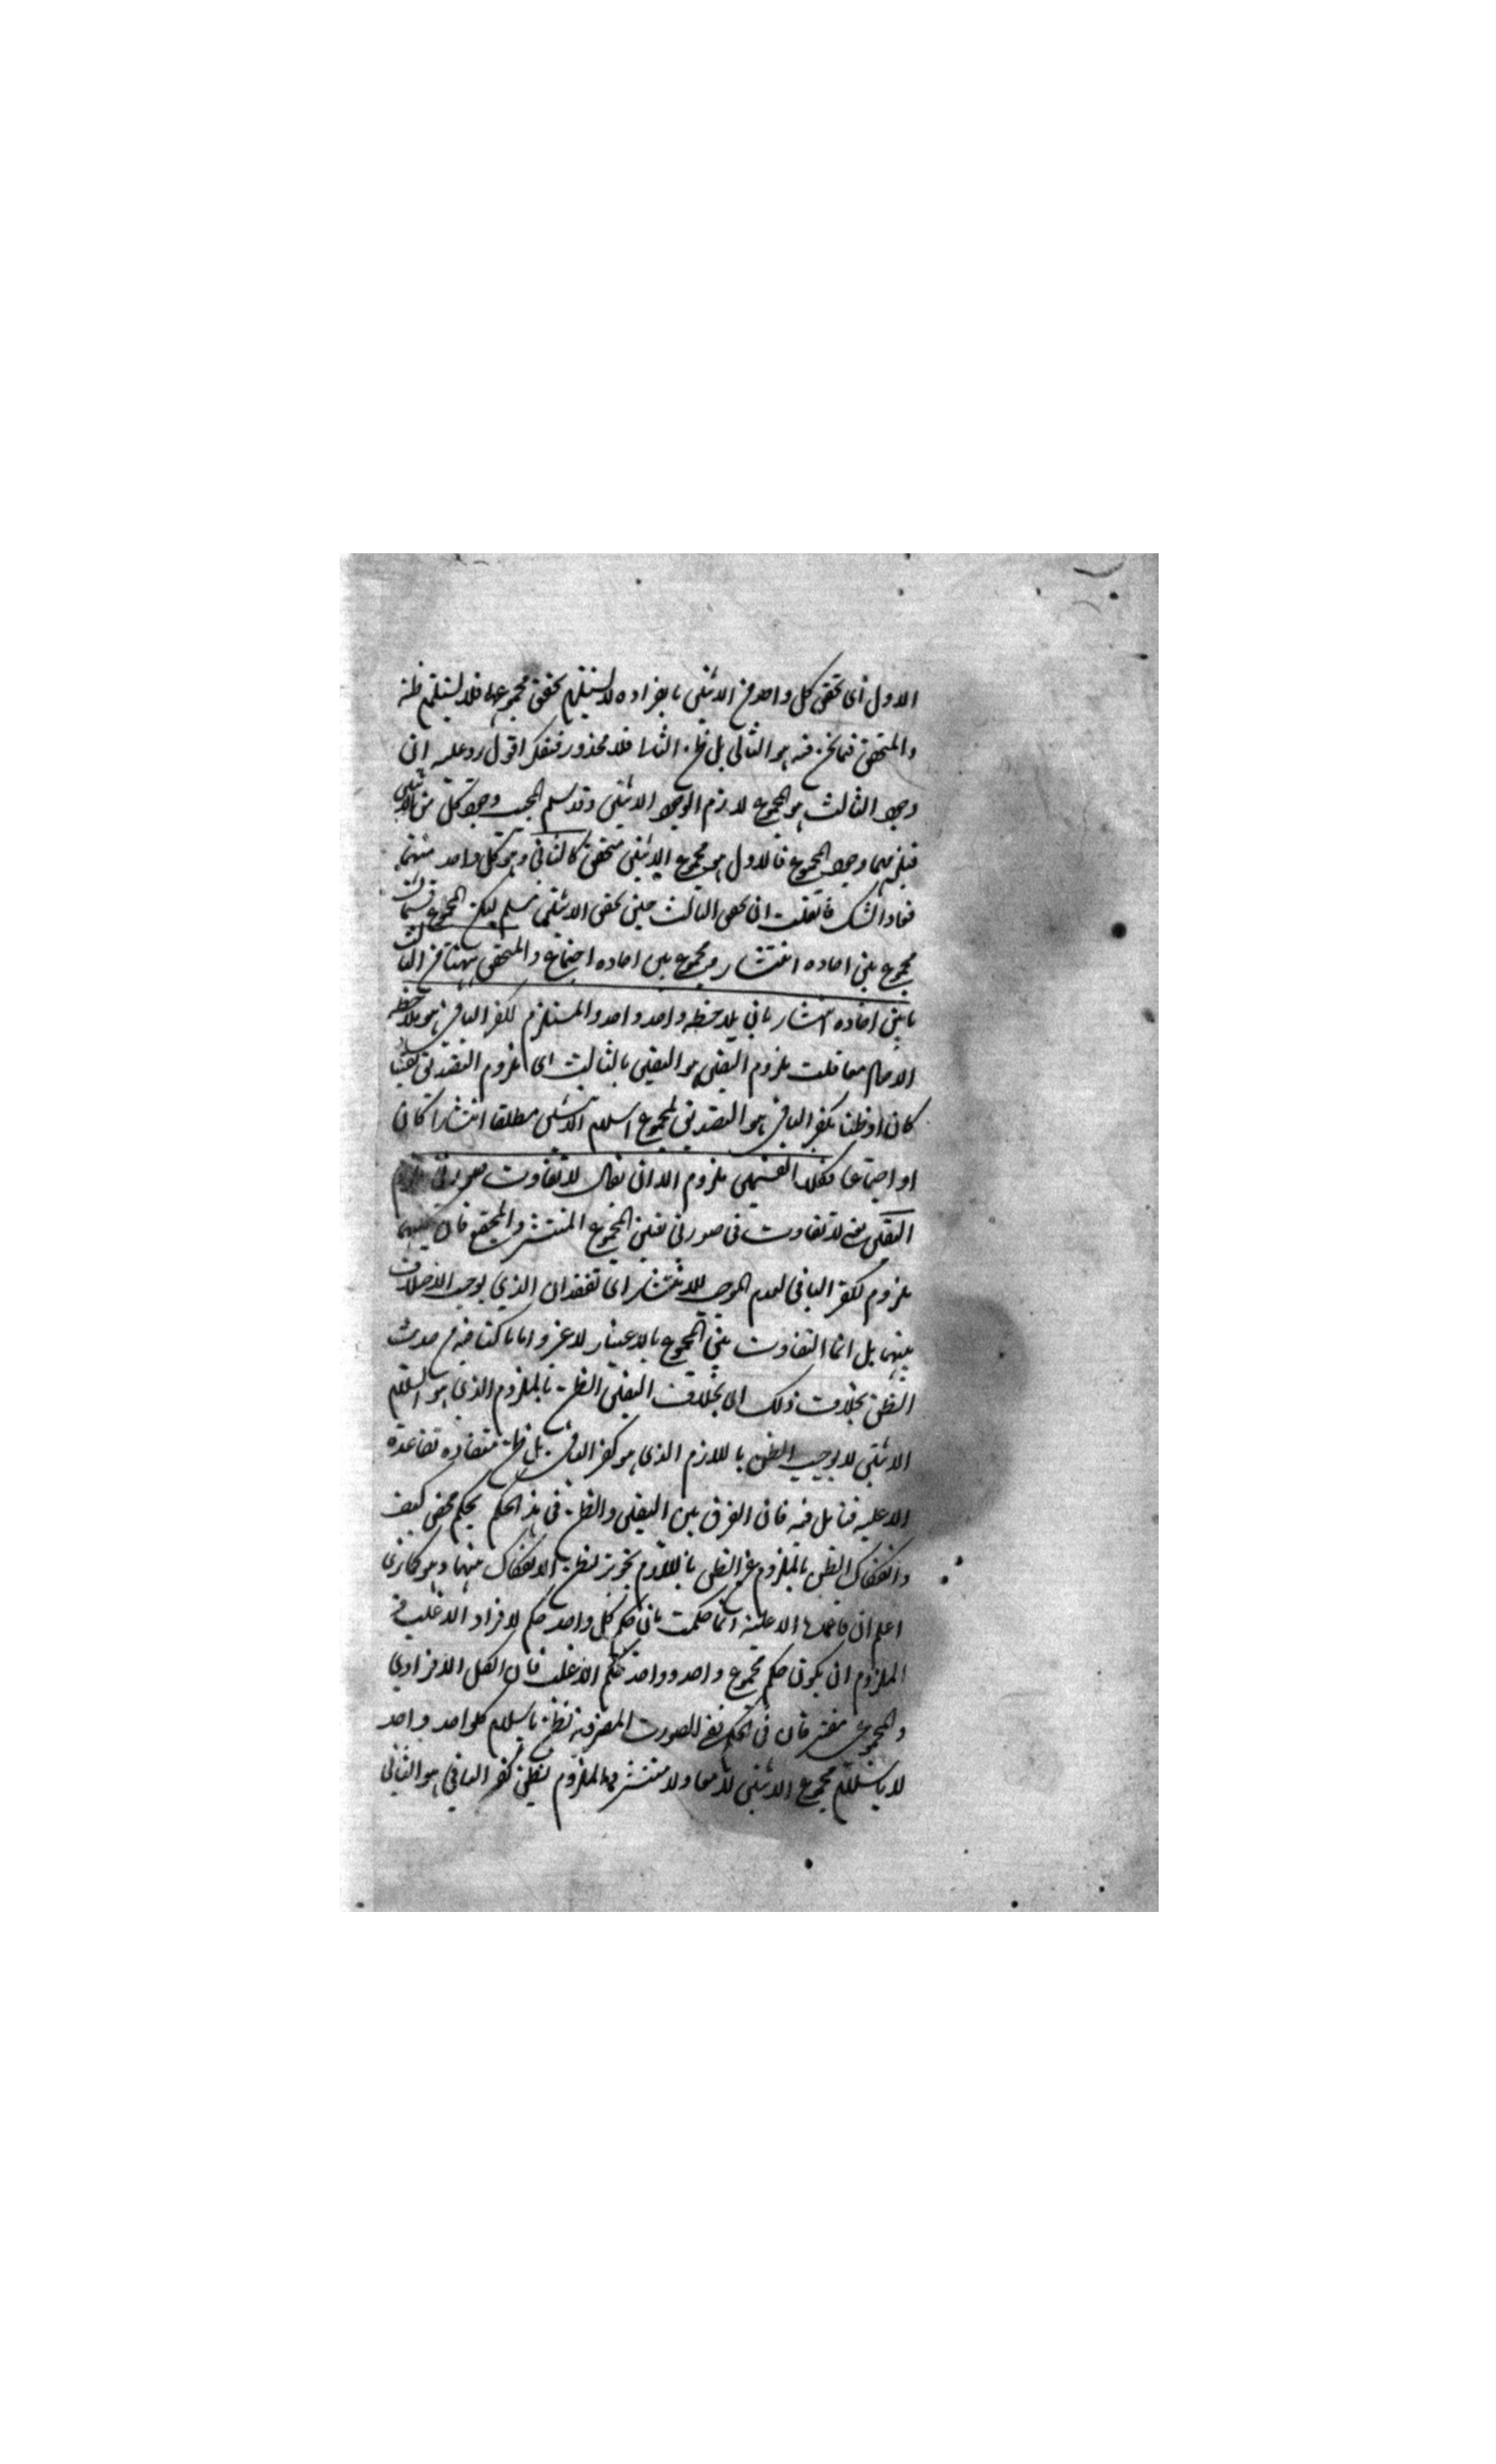 الاول اى تحقق كل واحد من الاثنين بانفراده لا يستلزم تحقق مجموعها فلا يستلزم ظنه
والمتحقق فيما نحن فيه هو الثانى بل ظن الثالث فلا محذور فتفكر اقول رد عليه ان
وجود الثالث هو المجموع لازم لوجود الاثنين وقد سلم المجيب وجود كل من الاثنين
فيلزمهما وجود المجموع فالاول هو مجموع الاثنين متحقق كالثانى وهو كل واحد منهما
فعاد الشك فان قلت ان تحقق الثالث حين تحقق الاثنين مسلم ليكن المجموع قسمان
مجموع بين احاده انتشار ومجموع بين احاده اجتماع والمتحقق ههنا من الثالث
ما بين احاده انتشار بان يلاحظه واحد واحد والمستلزم لكفر الباقى هو ملاحظة
الاسلام معا قلت ملزوم اليقين هو اليقين بالثالث اى ملزوم التصديق يقينا
كان او ظنا بكفر الباقى هو التصديق لمجموع اسلام الاثنين مطلقا انتشارا كان
او اجتماعا فكلا القسمين ملزوم الا ان يقال لا تفاوت صورتى
اليقين يعنى لا تفاوت فى صورتى يقين المجموع المنتشر والمجتمع فان كليهما
ملزوم لكفر الباقى لعدم الموجب للانتشار اى فقدان الذي يوجب الاختلاف
بينهما بل انما التفاوت بين المجموع بالاعتبار لا غير واما ما كنا فيه من حديث
الظن بخلاف ذلك اى بخلاف اليقين الظن بالملزوم الذى هو اسلام
الاثنين لا يوجب الظن باللازم الذى هو كفر الباقى بل ظن متضاده لقاعدة
الاغلبية فتامل فيه فان الفرق بين اليقين والظن فى هذا الحكم تحكم محض كيف
وانفكاك الظن بالملزوم عن الظن باللازم تجويز لظن الانفكاك بينهما وهو كما ترى
اعلم ان قاعدة الاغلبية انما حكمت بان حكم كل واحد حكم لافراد الاغلب فى
الملزوم ان يكون حكم مجموع واحد وواحد حكم الاغلب فان الكل الافرادي
والمجموعى مفترقان فى الحكم ففى الصورت المفروضة نظن باسلام كلواحد واحد
لا باسلام مجموع الاثنين لا معا ولا منتشرا والملزوم لظن كفر الباقى هو الثانى